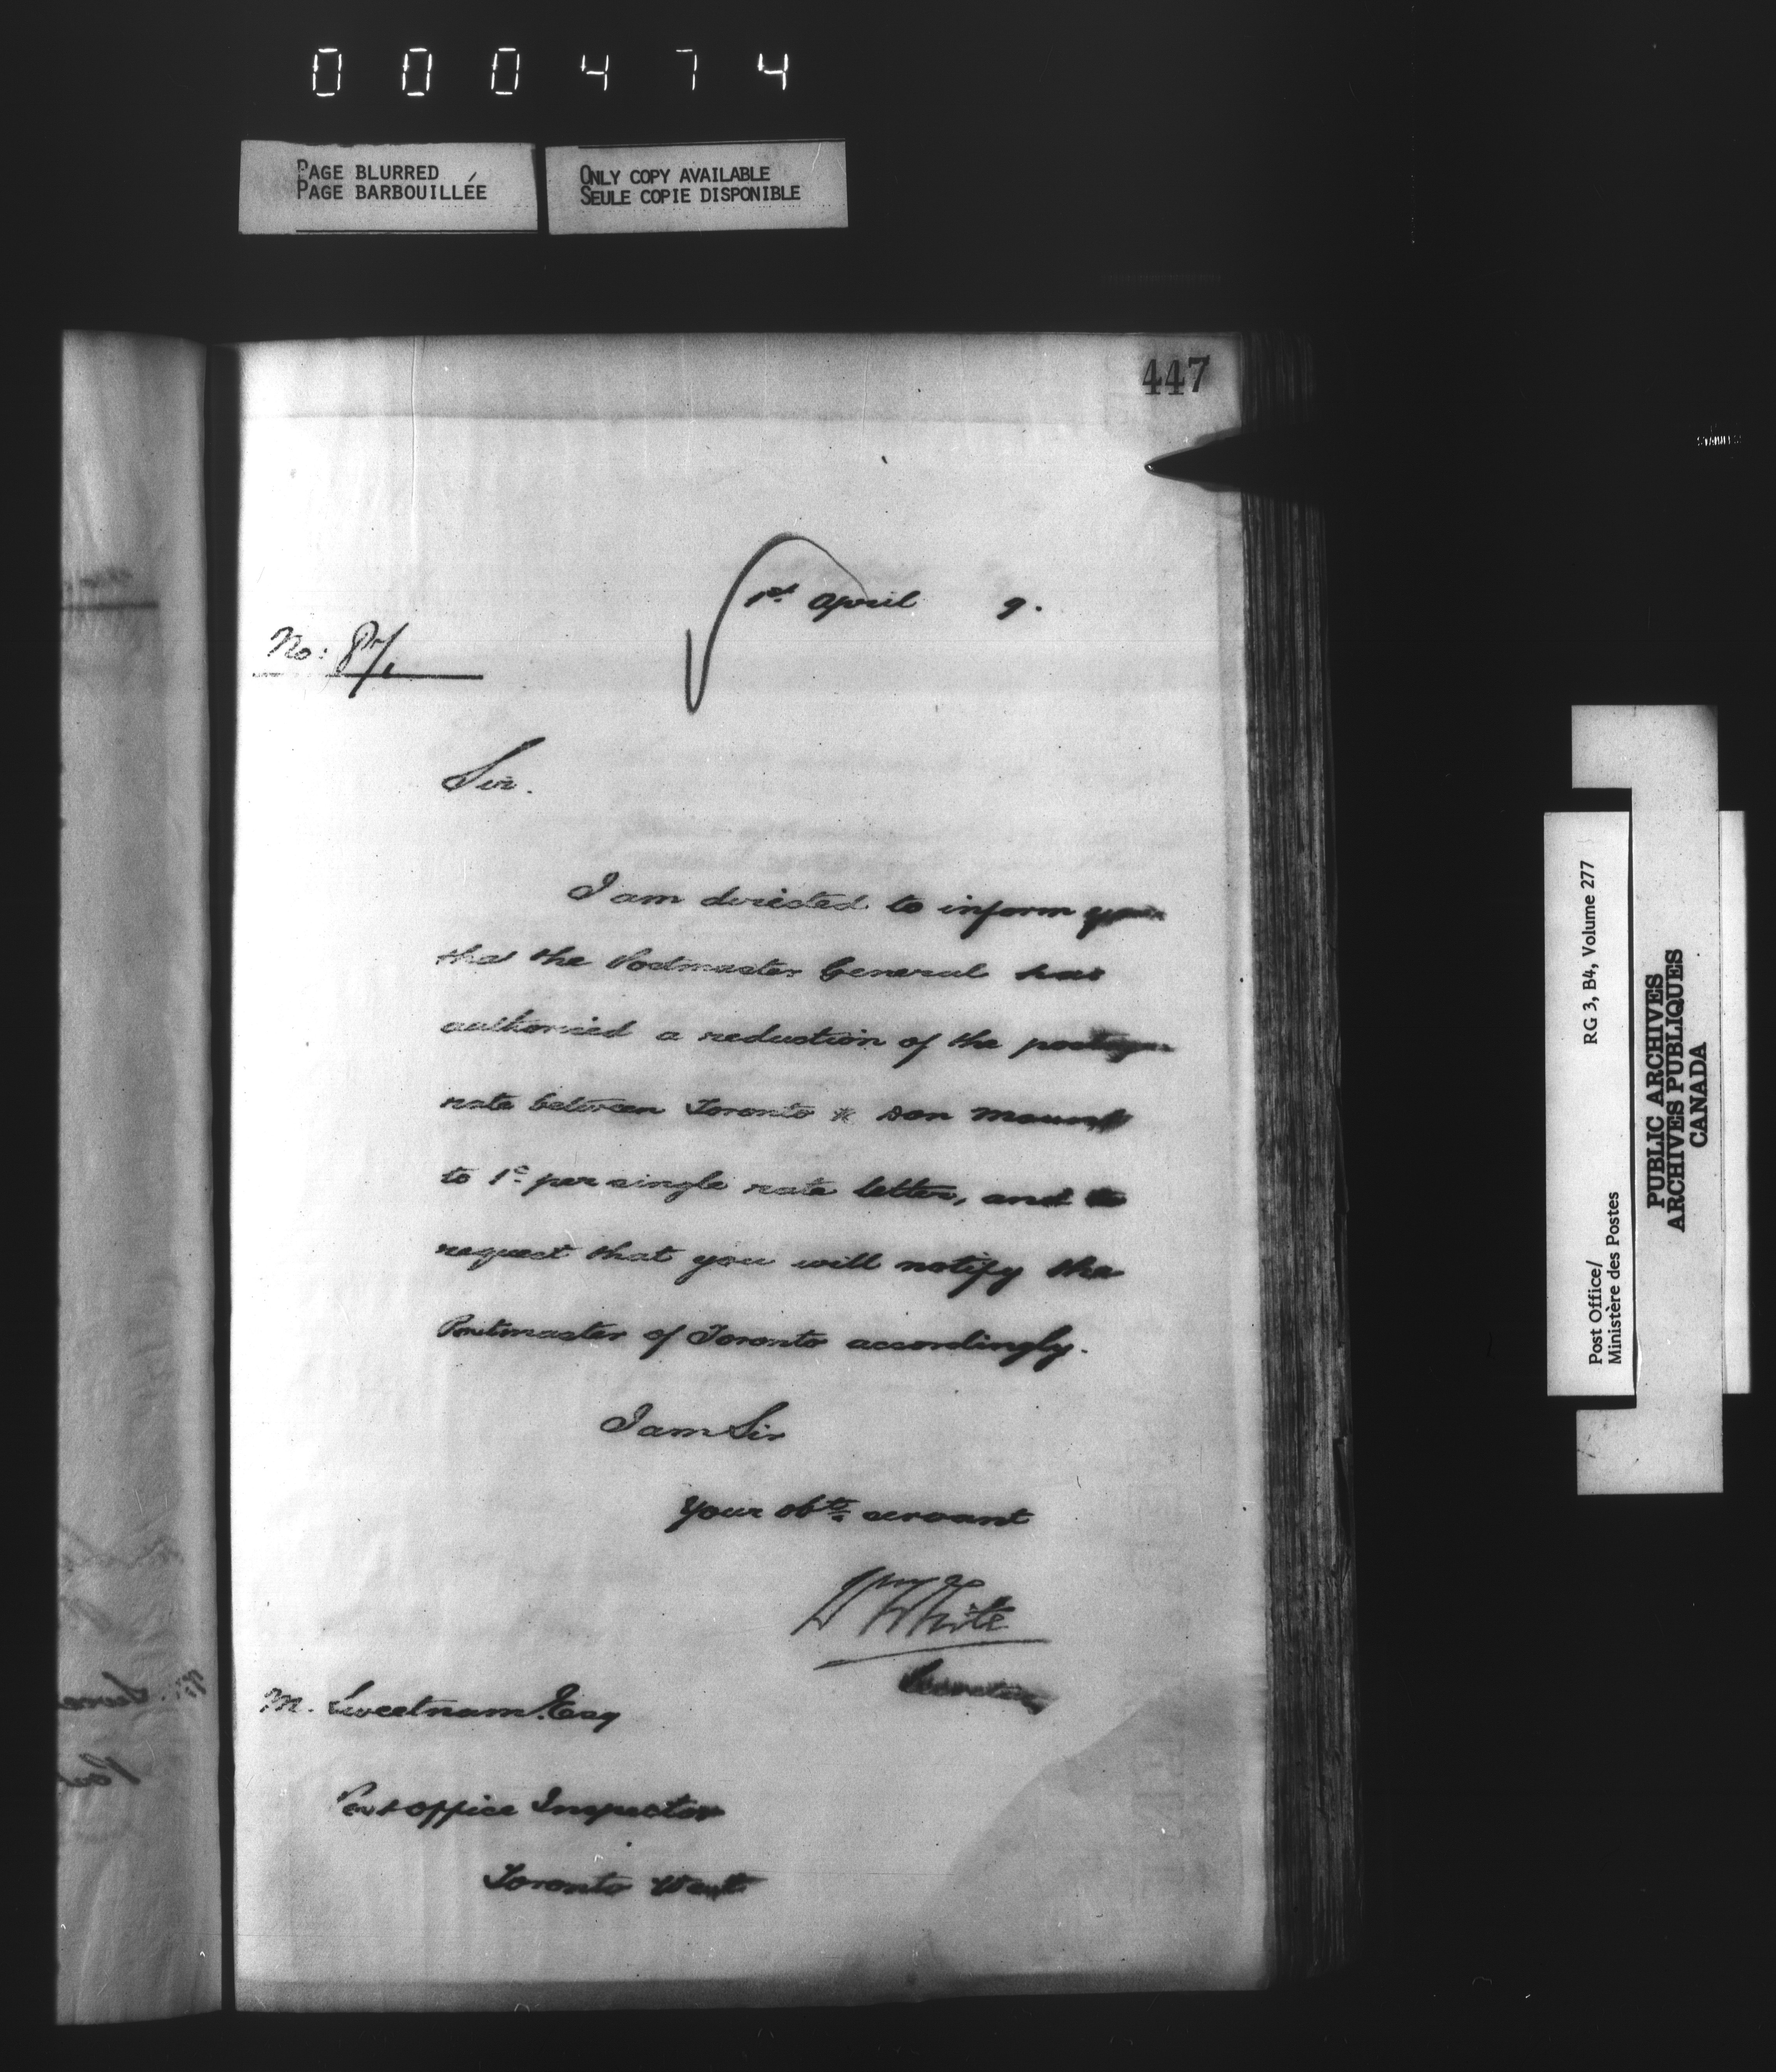 000474
PAGE BLURRED
PAGE BARBOUILLÉE
ONLY COPY AVAILABLE
SEULE COPIE DISPONIBLE
447
1st April 9.
No:
Sir.
I am directed to inform you
that the Postmaster General has
authorised a reduction of the postage
rate between Toronto & Don Mount
to 1c per single rate letter, and to
request that you will notify the
Postmaster of Toronto accordingly.
I am Sir
Your obt. servant
Wm White
Secretary
M. Sweetnam Esq
Post Office Inspector
Toronto West
Post Office/ RG 3, B4, Volume 277
Ministère des Postes
PUBLIC ARCHIVES
ARCHIVES PUBLIQUES
CANADA